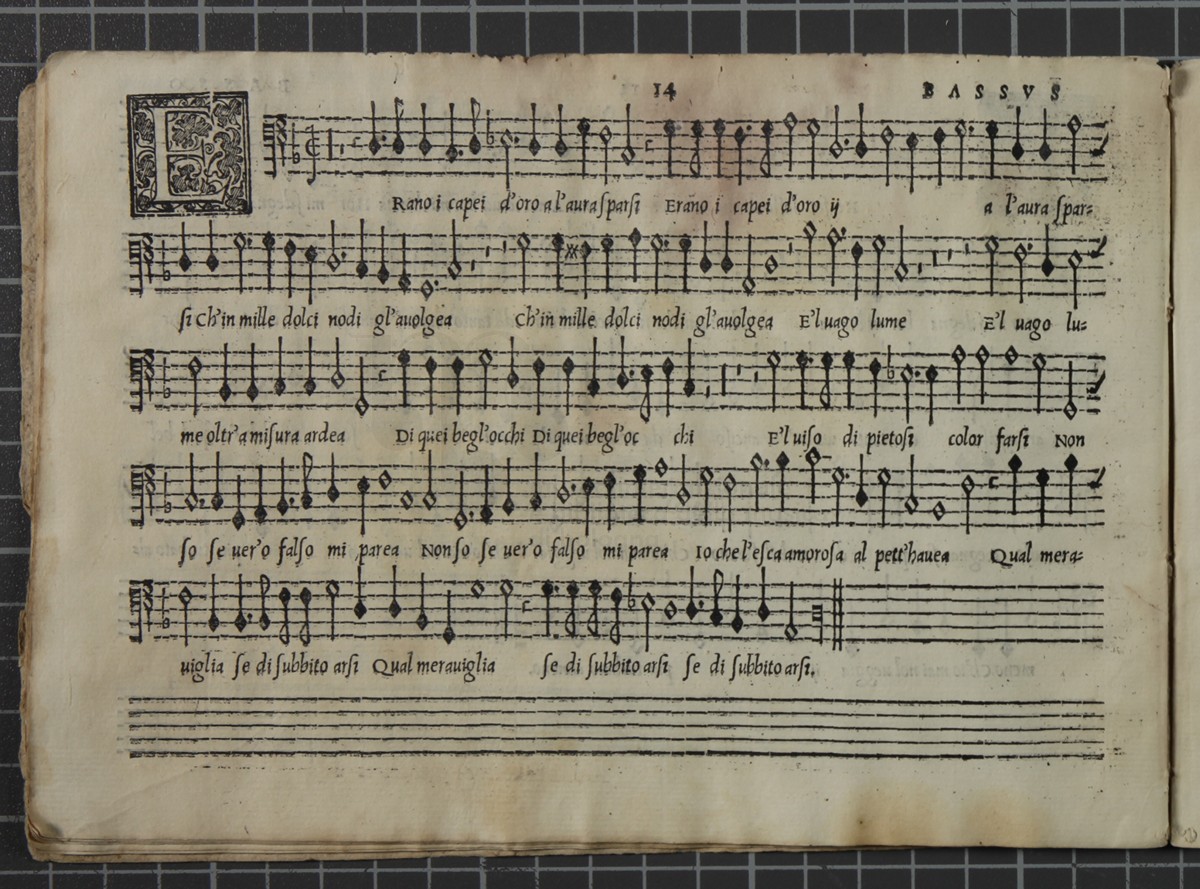 14 BASSVS
ERano i capei d'oro a l'aura ſparſi Erano i capei d'oro ij a l'aura ſpar=
ſi Ch'in mille dolci nodi gl'auolgea Ch'in mille dolci nodi gl'auolgea E'l uago lume E'l uago lu=
me oltr'a miſura ardea Di quei begl'occhi Di quei begl'oc chi E'l uiſo di pietoſi color farſi Non
ſo ſe uer'o falſo mi parea Non ſo ſe uer'o falſo mi parea Io che l'eſca amoroſa al pett'hauea Qual mera=
uiglia ſe di ſubbito arſi Qual merauiglia ſe di ſubbito arſi ſe di ſubbito arſi.